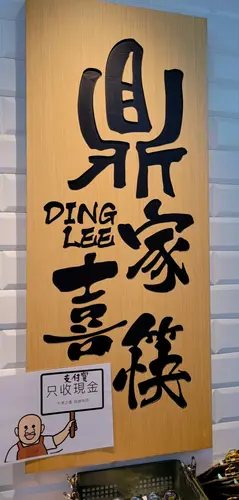 鼎
家
喜
筷
DING
LEE
支付寶
只收現金